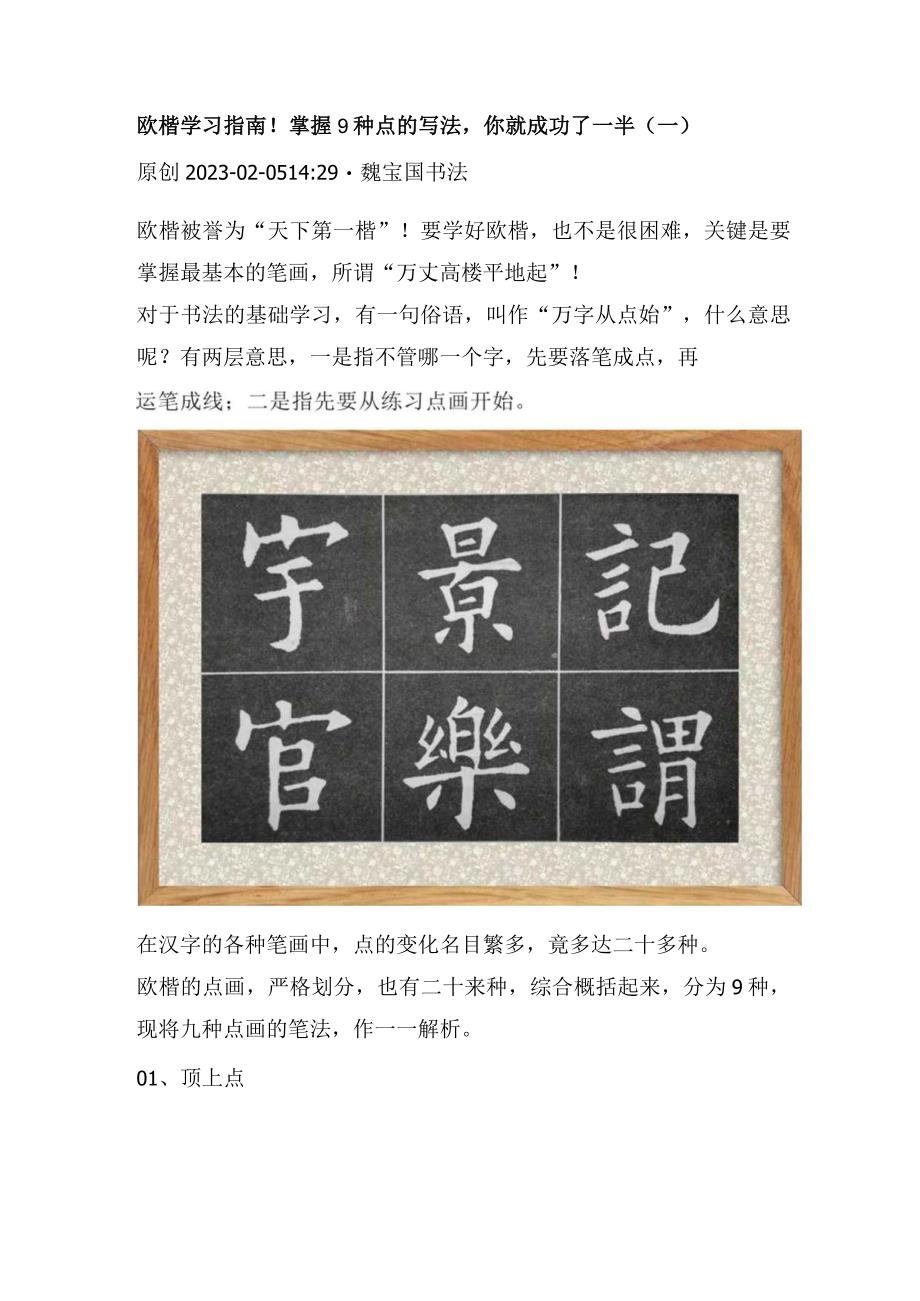 欧楷学习指南！掌握9种点的写法，你就成功了一半（一）
原创2023-02-0514:29·魏宝国书法
欧楷被誉为“天下第一楷”！要学好欧楷，也不是很困难，关键是要
掌握最基本的笔画，所谓“万丈高楼平地起”！
对于书法的基础学习，有一句俗语，叫作“万字从点始”，什么意思
呢？有两层意思，一是指不管哪一个字，先要落笔成点，再
运笔成线；二是指先要从练习点画开始。
宇 景 記
官 樂 謂
在汉字的各种笔画中，点的变化名目繁多，竟多达二十多种。
欧楷的点画，严格划分，也有二十来种，综合概括起来，分为9种，
现将九种点画的笔法，作一一解析。
01、顶上点